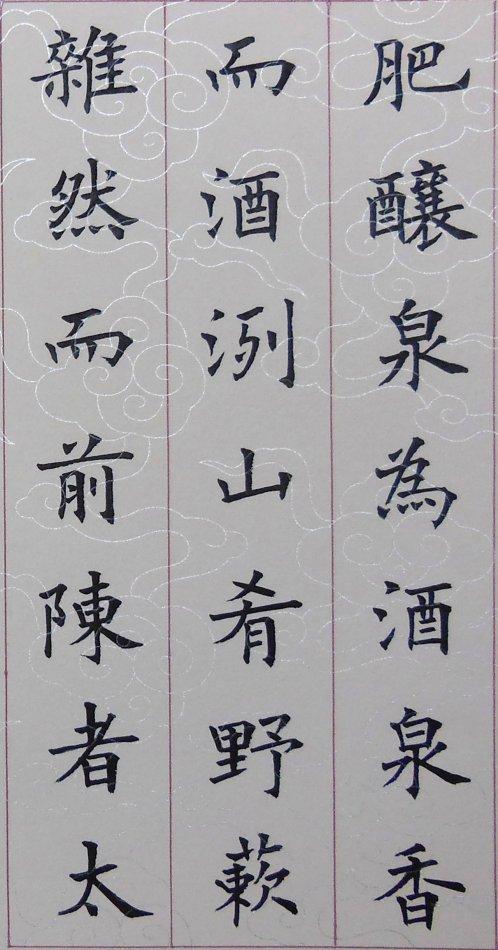 肥釀泉為酒泉香
而酒洌山肴野蔌
雜然而前陳者太